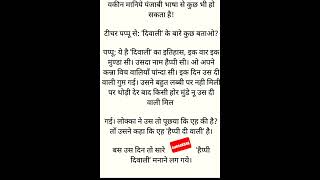 यकीन मानिये पंजाबी भाषा से कुछ भी हो
सकता है!
टीचर पप्पू से: 'दिवाली' के बारे कुछ बताओ?
पप्पू: ये है 'दिवाली' का इतिहास, इक वार इक
मुण्डा सी। उसदा नाम हैप्पी सी। ओ अपने
कन्ना विच वालियाँ पांदा सी। इक दिन उस दी
वाली गुम गई। उसने बहुत लब्बी पर नही मिली
पर थोड़ी देर बाद किसी होर मुंडे नू उस दी
वाली मिल
गई। लोक्का ने उस तो पूछया कि एह की है?
तों उसने कहा कि एह 'हैप्पी दी वाली' है।
बस उस दिन तो सारे SUBSCRIBE 'हैप्पी
दिवाली' मनाने लग गये।